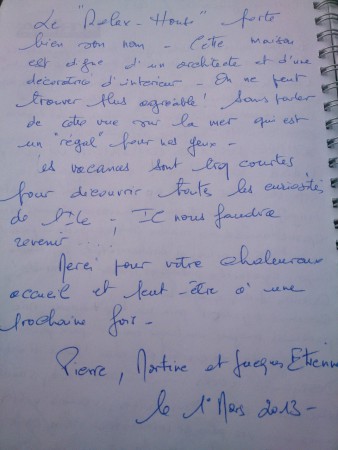 Le "Relax-House" porte
bien son nom - Cette maison
est digne d'un architecte et d'une
décoratrice d'intérieur - On ne peut
trouver plus agréable ! Sans parler
de cette vue sur la mer qui est
un "régal" pour nos yeux -
les vacances sont trop courtes
pour découvrir toutes les curiosités
de l'île - Il nous faudra
revenir ....!
Merci pour votre chaleureux
accueil et peut-être à une
prochaine fois -
Pierre, Martine et Jacques Etienne
le 1° Mars 2013 -